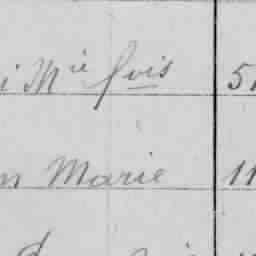 i Mie fois 51
n Marie 11